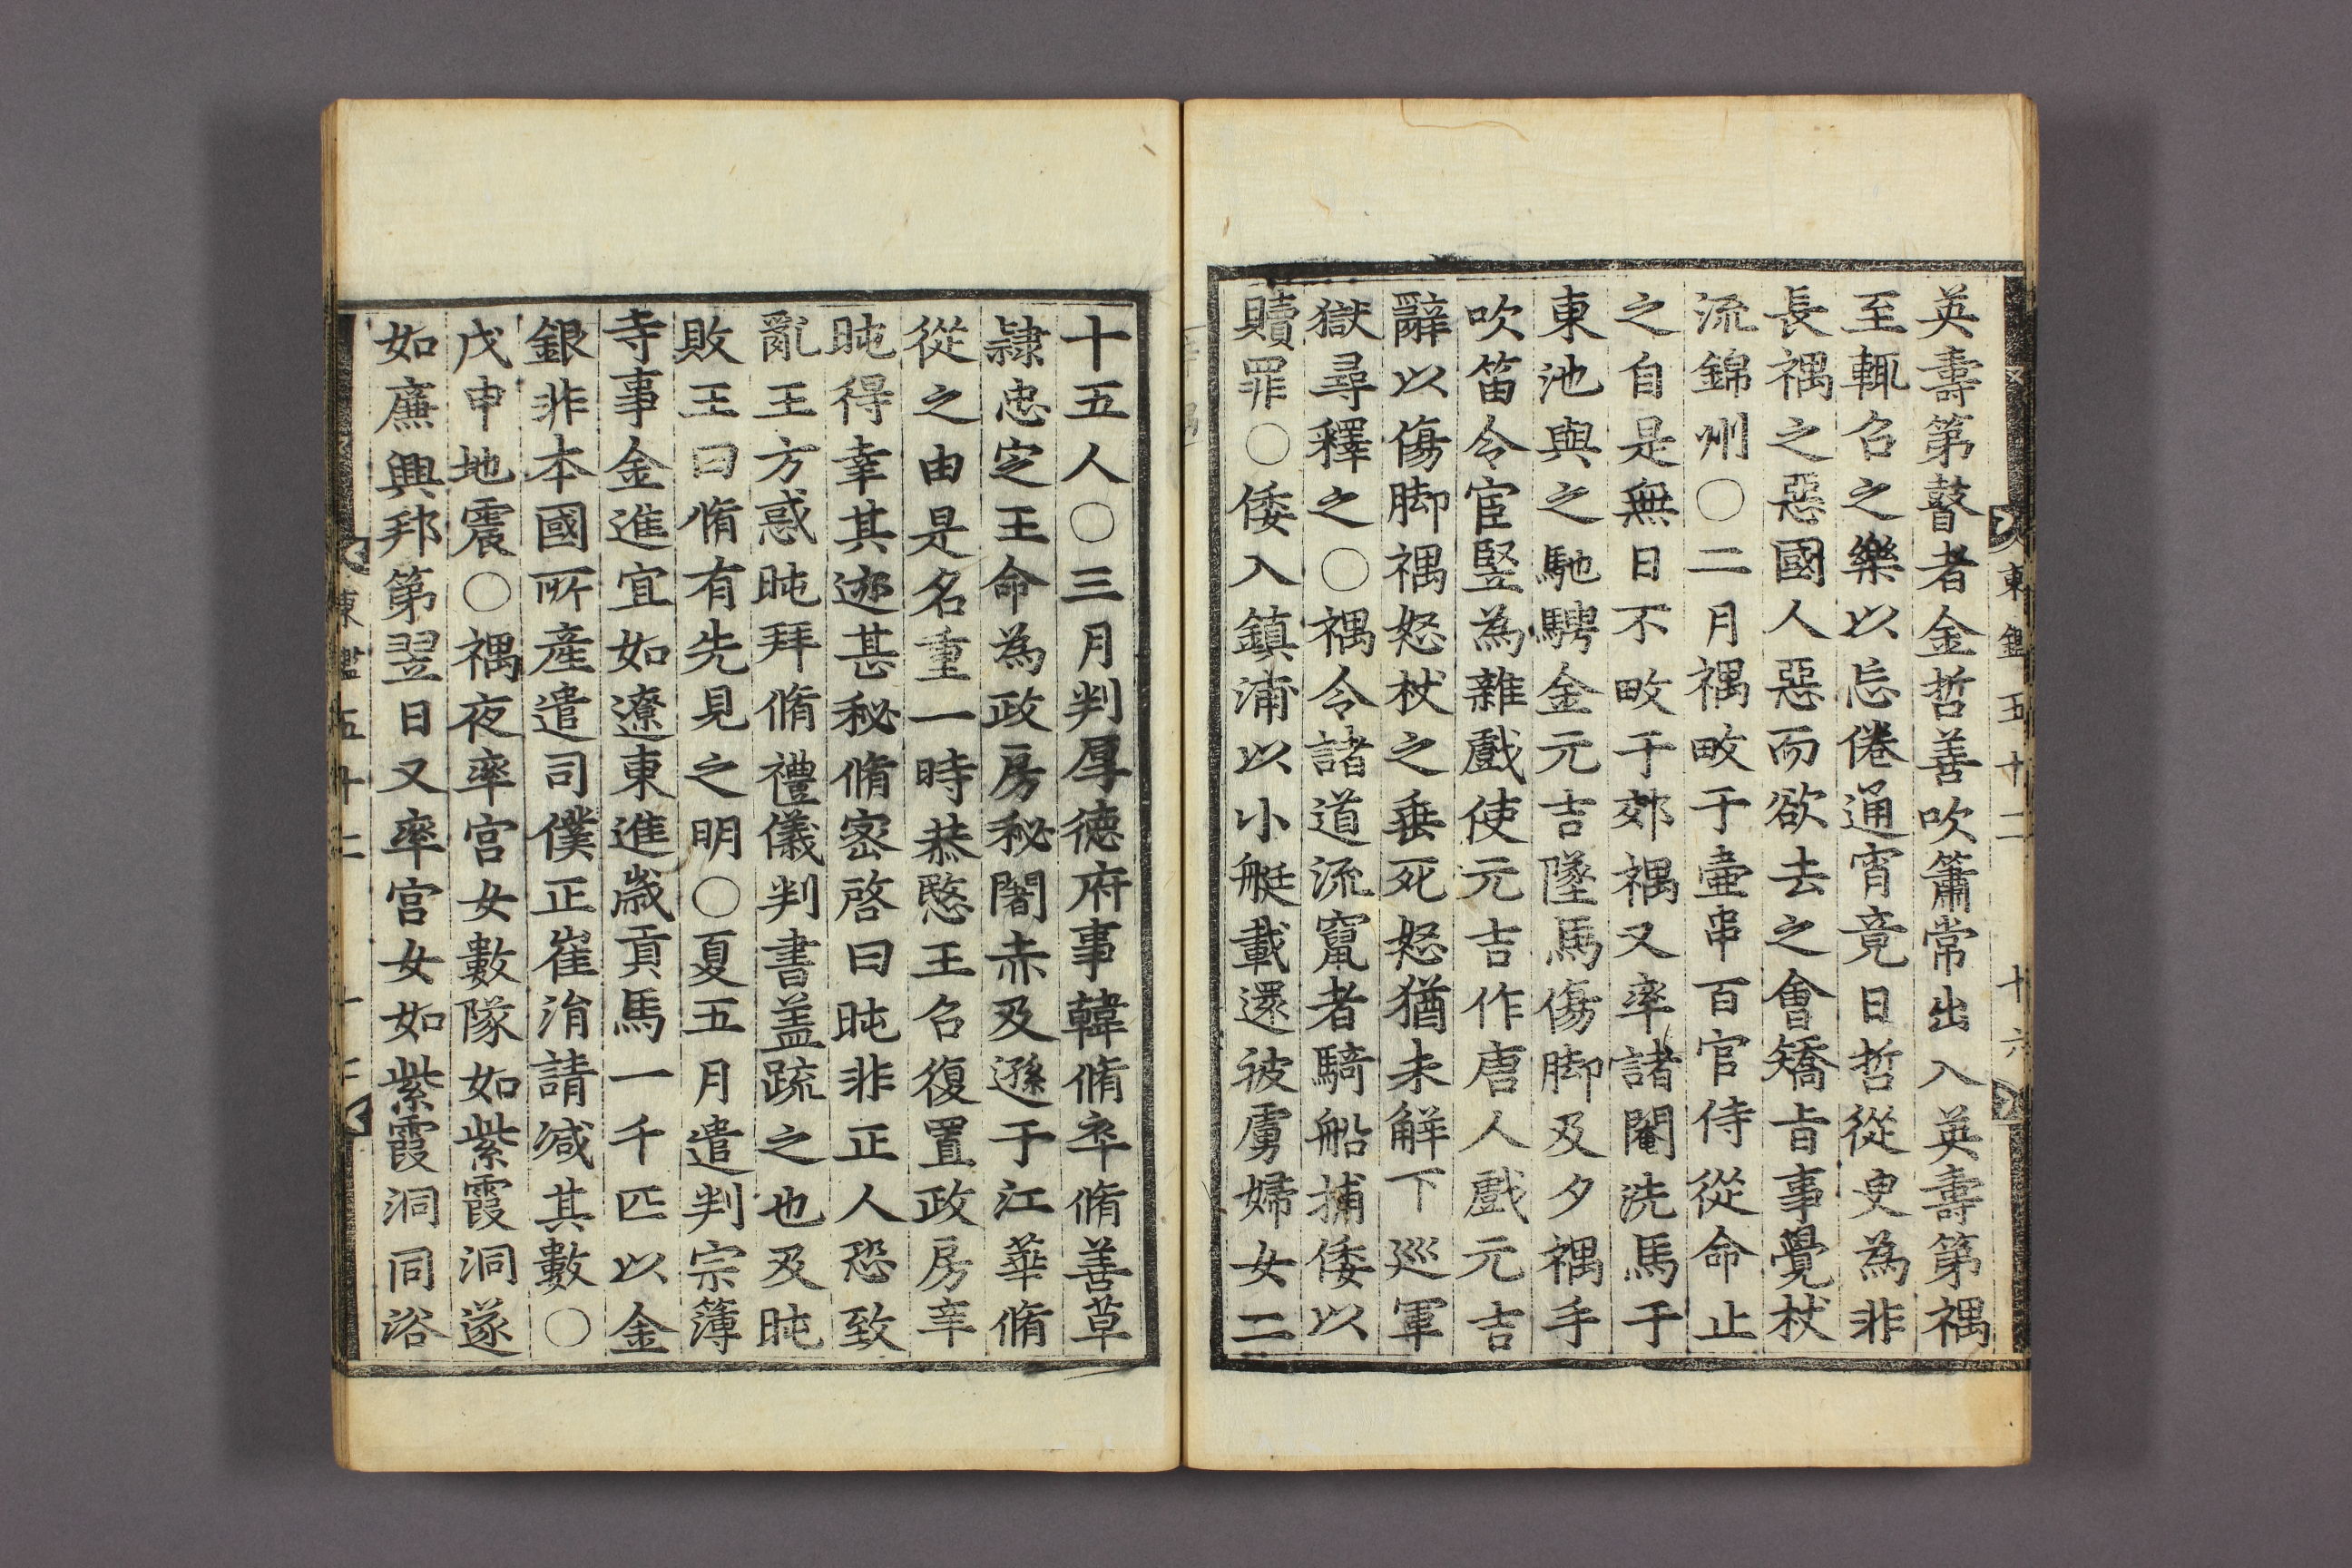 東鑑五十二 十六
英壽第瞽者金哲善吹簫常出入英壽第禑
至輒召之樂以忘倦通宵竟日哲從臾為非
長禑之惡國人惡而欲去之會矯旨事覺杖
流錦州○二月禑畋于壷串百官侍從命止
之自是無日不畋于郊禑又率諸閹洗馬于
東池與之馳騁金元吉墜馬傷脚及夕禑手
吹笛令宦竪為雜戲使元吉作唐人戲元吉
辭以傷脚禑怒杖之垂死怒猶未解下巡軍
獄尋釋之○禑令諸道流竄者騎船捕倭以
贖罪○倭入鎮浦以小艇載還彼虜婦女二
十五人○三月判厚德府事韓脩卒脩善草
隷忠定王命為政房秘闍赤及遜于江華脩
從之由是名重一時恭愍王召復置政房辛
旽得幸其迹甚秘脩密啓曰旽非正人恐致
亂王方惑旽拜脩禮儀判書盖疏之也及旽
敗王曰脩有先見之明○夏五月遣判宗簿
寺事金進宜如遼東進歲貢馬一千匹以金
銀非本國所產遣司僕正崔涓請减其數○
戊申地震○禑夜率宮女數隊如紫霞洞遂
如廉興邦第翌日又率宮女如紫霞洞同浴
東鑑五十二